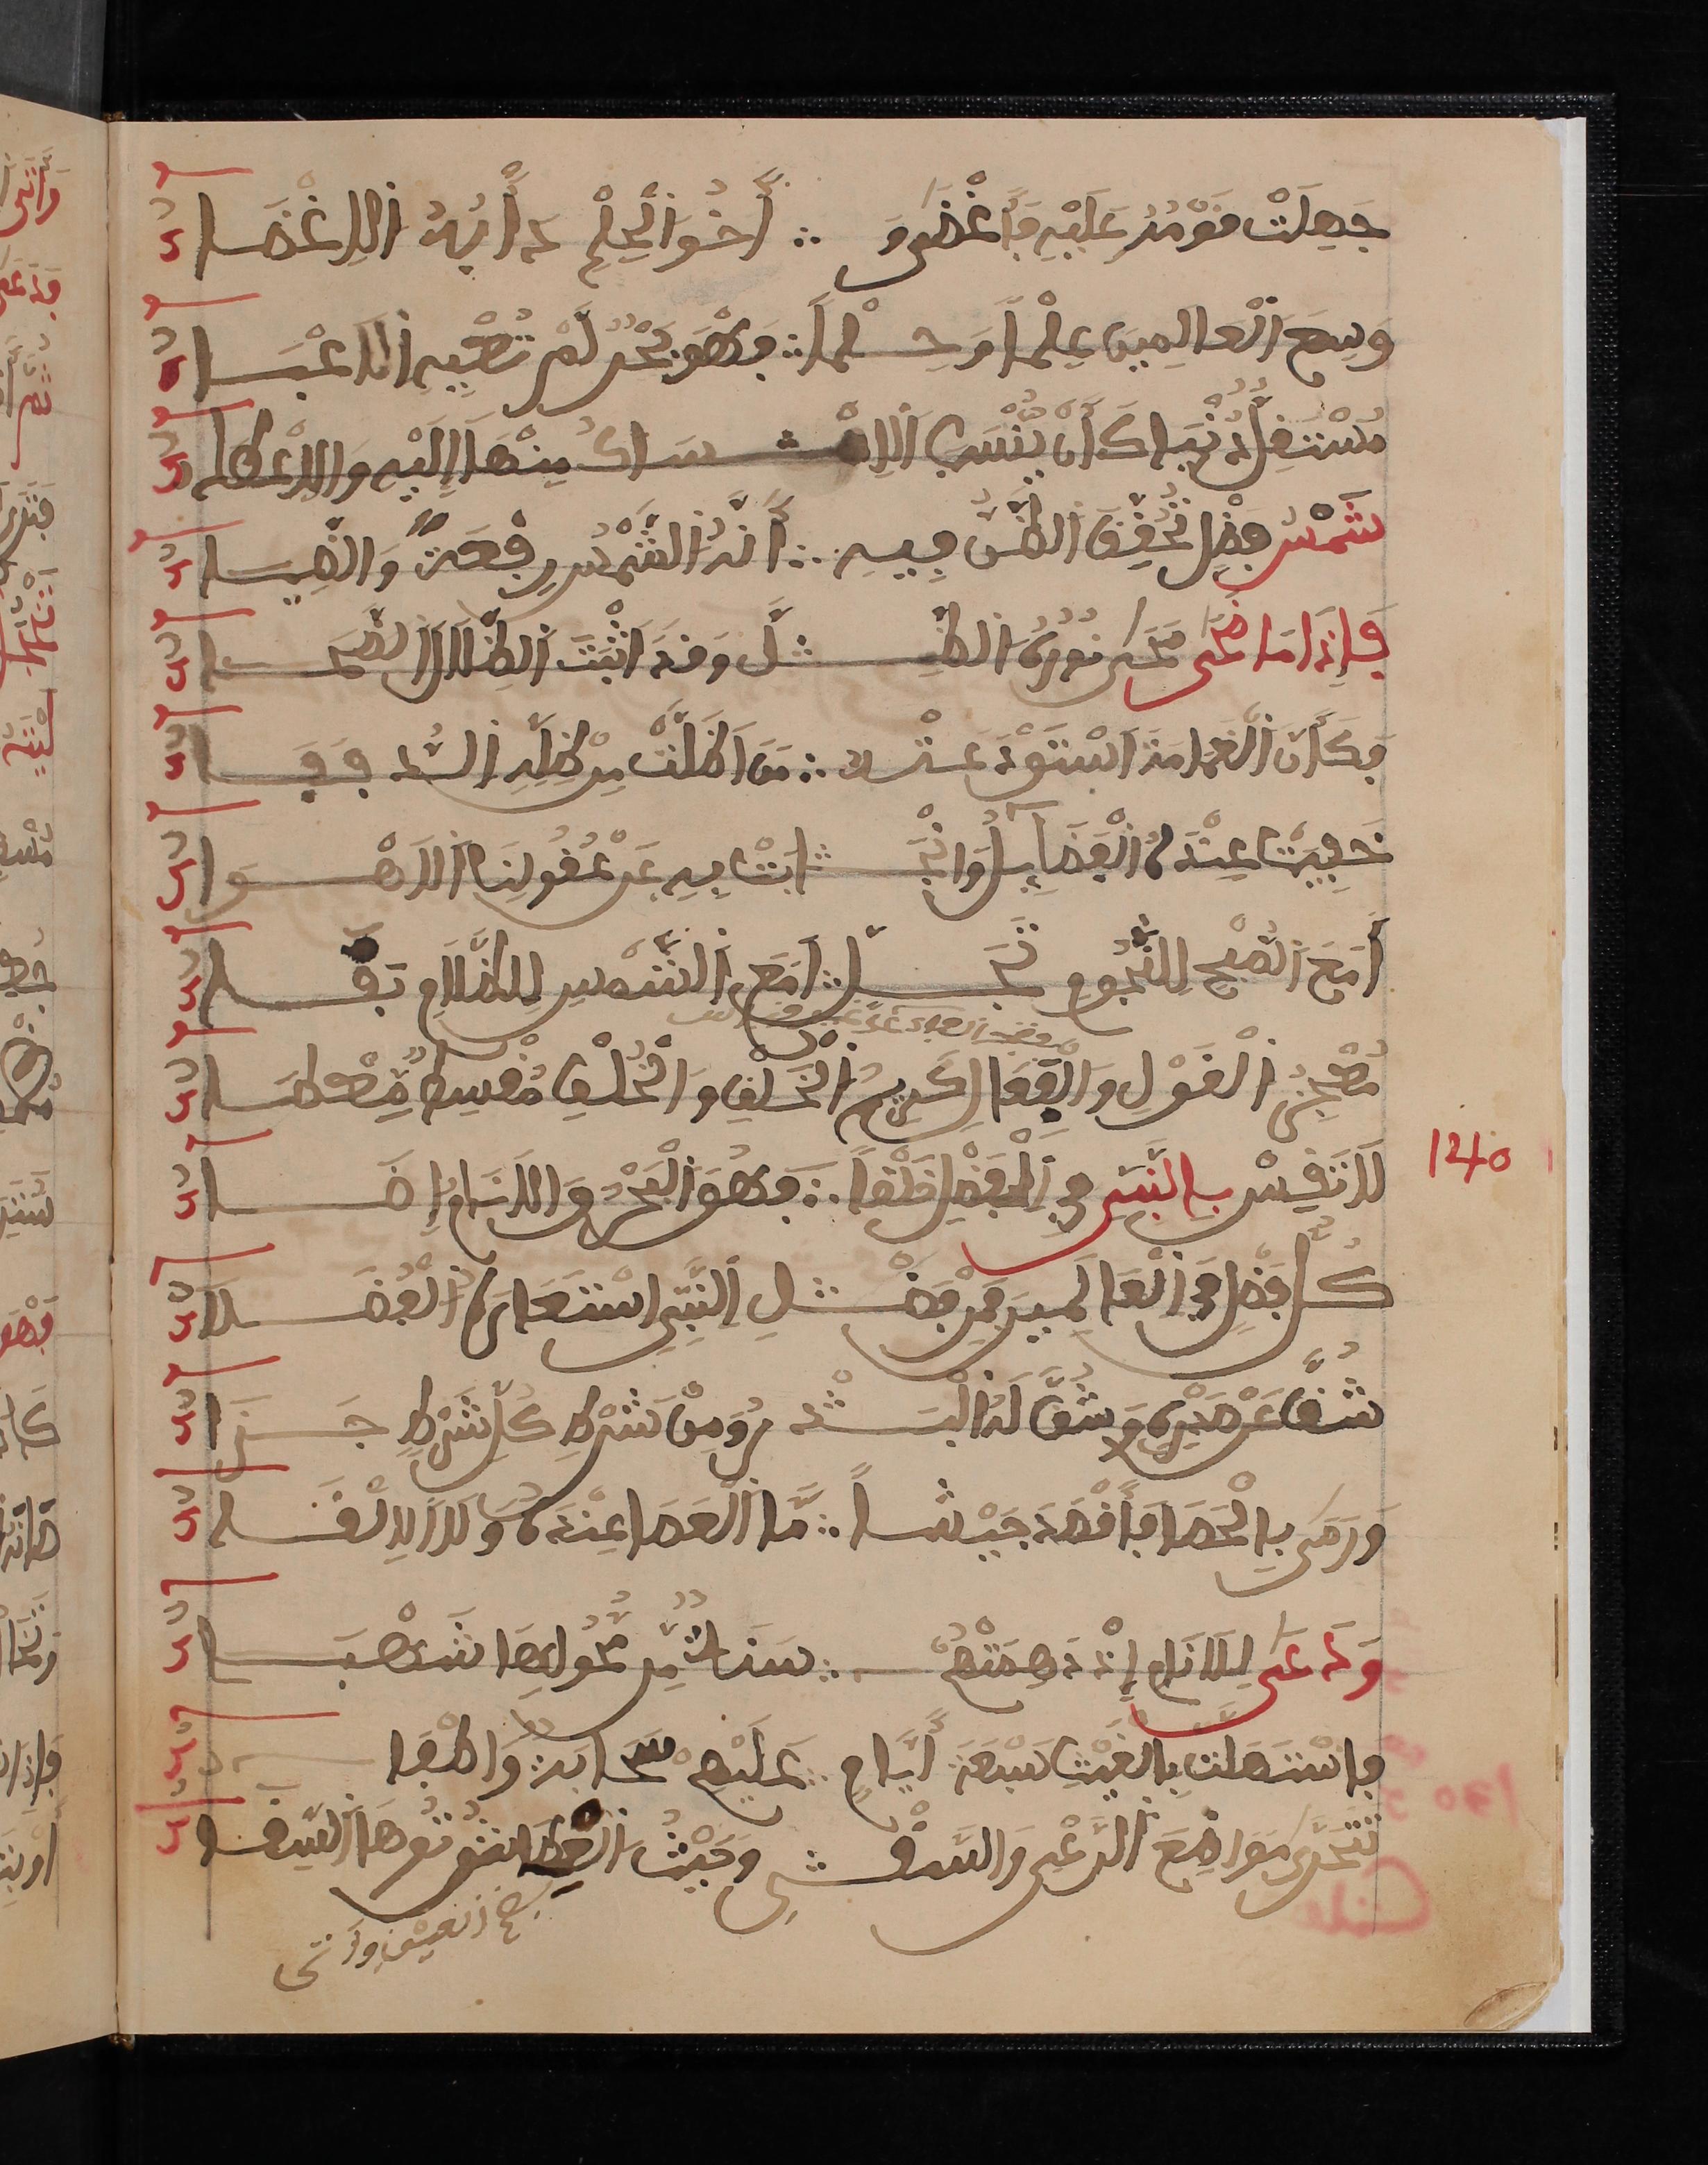 جَهِلَتْ قَوْمُهُ عَلَيْهِ فَأَغْضَى وَ ∴ أَخُو الْحِلْمِ دَأْبُهُ الِاغْضَا
وَسِعَ الْعَالَمِينَ عِلْماً وَحِلْماً ∴ فَهْوَ بَحْرٌ لَمْ تُعْيِهِ الَاعْبَا
مُسْتَقِلٌّ دُنْيَاكَ أَنْ يُنْسَبَ الِامْـ ∴ ـسَاكُ مِنْهَا إِلَيْهِ وَالِاعْطَا
شَمْسُ فَضْلٍ تَحَقَّقَ الظَّنُّ فِيهِ ∴ أَنَّهُ الشَّمْسُ رِفْعَةً وَالضِّيَا
فَإِذَا مَا ضَحَى مَحَى نُورُهُ الظِّـ ∴ ـلَّ وَقَدَ اثْبَتَ الظِّلَالَ الضُّحَا
فَكَأَنَّ الْغَمَامَةَ اسْتَوْدَعَتْهُ ∴ مَنَ اظَلَّتْ مِنْ ظِلِّهِ الدُّفَفَا
خَفِيَتْ عِنْدَهُ الْفَضَائِلُ وَانْجَـ ∴ ـابَتْ بِهِ عَنْ عُقُولِنَا الَاهْوَا
أَمَعَ الصُّبْحِ لِلنُّجُومِ تَجَلٍّ ∴ أَمْ مَعَ الشَّمْسِ لِلظَّلَامِ بَقَا
مُعْجِزُ الْقَوْلِ وَالْفِعَالِ كَرِيمُ الْخَلْقِ وَالْخُلْقِ مُقْسِطٌ مِعْطَا
لَا تَقِسْ بِالنَّبِي فِي الْفَضْلِ خَلْقاً ∴ فَهُوَ الْبَحْرُ وَالَانَامُ إِضَا
140
كُلُّ فَضْلٍ فِي الْعَالَمِينَ فَمِنْ فَضْـ ∴ ـلِ النَّبِي اسْتَعَارَهُ الْفُضَلَا
شُقَّ عَنْ صَدْرِهِ وَشُقَّ لَهُ الْبَدْ ∴ رُ وَمِنْ شَرْطِ كُلِّ شَرْطٍ جَزَا
وَرَمَى بِالْحَصَا فَأَقْصَدَ جَيْشاً ∴ مَّا الْعَصَا عِنْدَهُ وَلَا الِالْقَا
وَدَعَى لِلَانَامِ إِذْ دَهِمَتْهُمْ ∴ سَنَةٌ مِّن مُّحُولِهَا شَهْبَا
فَاسْتَهَلَّتْ بِالْغَيْثِ سَبْعَةَ أَيَّامٍ ∴ عَلَيْهِمْ سَحَابَةٌ وَطْفَا
تَتَحَرَّى مَوَاضِعَ الرَّعْيِ وَالسَّقْـ ∴ ـيِ وَحَيْثُ الْعِطَاشُ تُوهَا السِّقَا